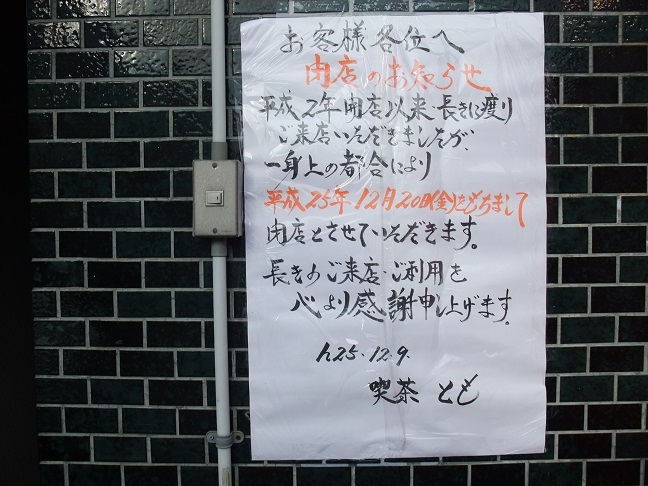 お客様各位へ
閉店のお知らせ
平成2年開店以来長きに渡り
ご来店いただきましたが、
一身上の都合により
平成25年12月20日(金)をもちまして
閉店とさせていただきます。
長きのご来店・ご利用を
心より感謝申し上げます。
h25.12.9.
喫茶とも